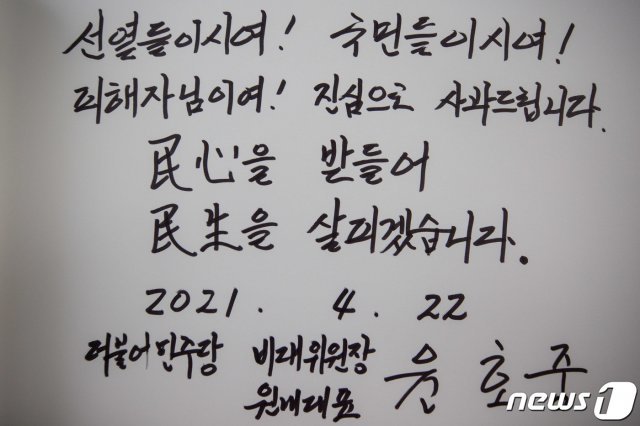 선열들이시여! 국민들이시여!
피해자님이여! 진심으로 사과드립니다.
民心을 받들어
民生을 살피겠습니다.
2021. 4. 22
더불어민주당 비대위원장
원내대표 윤 호 중
news1